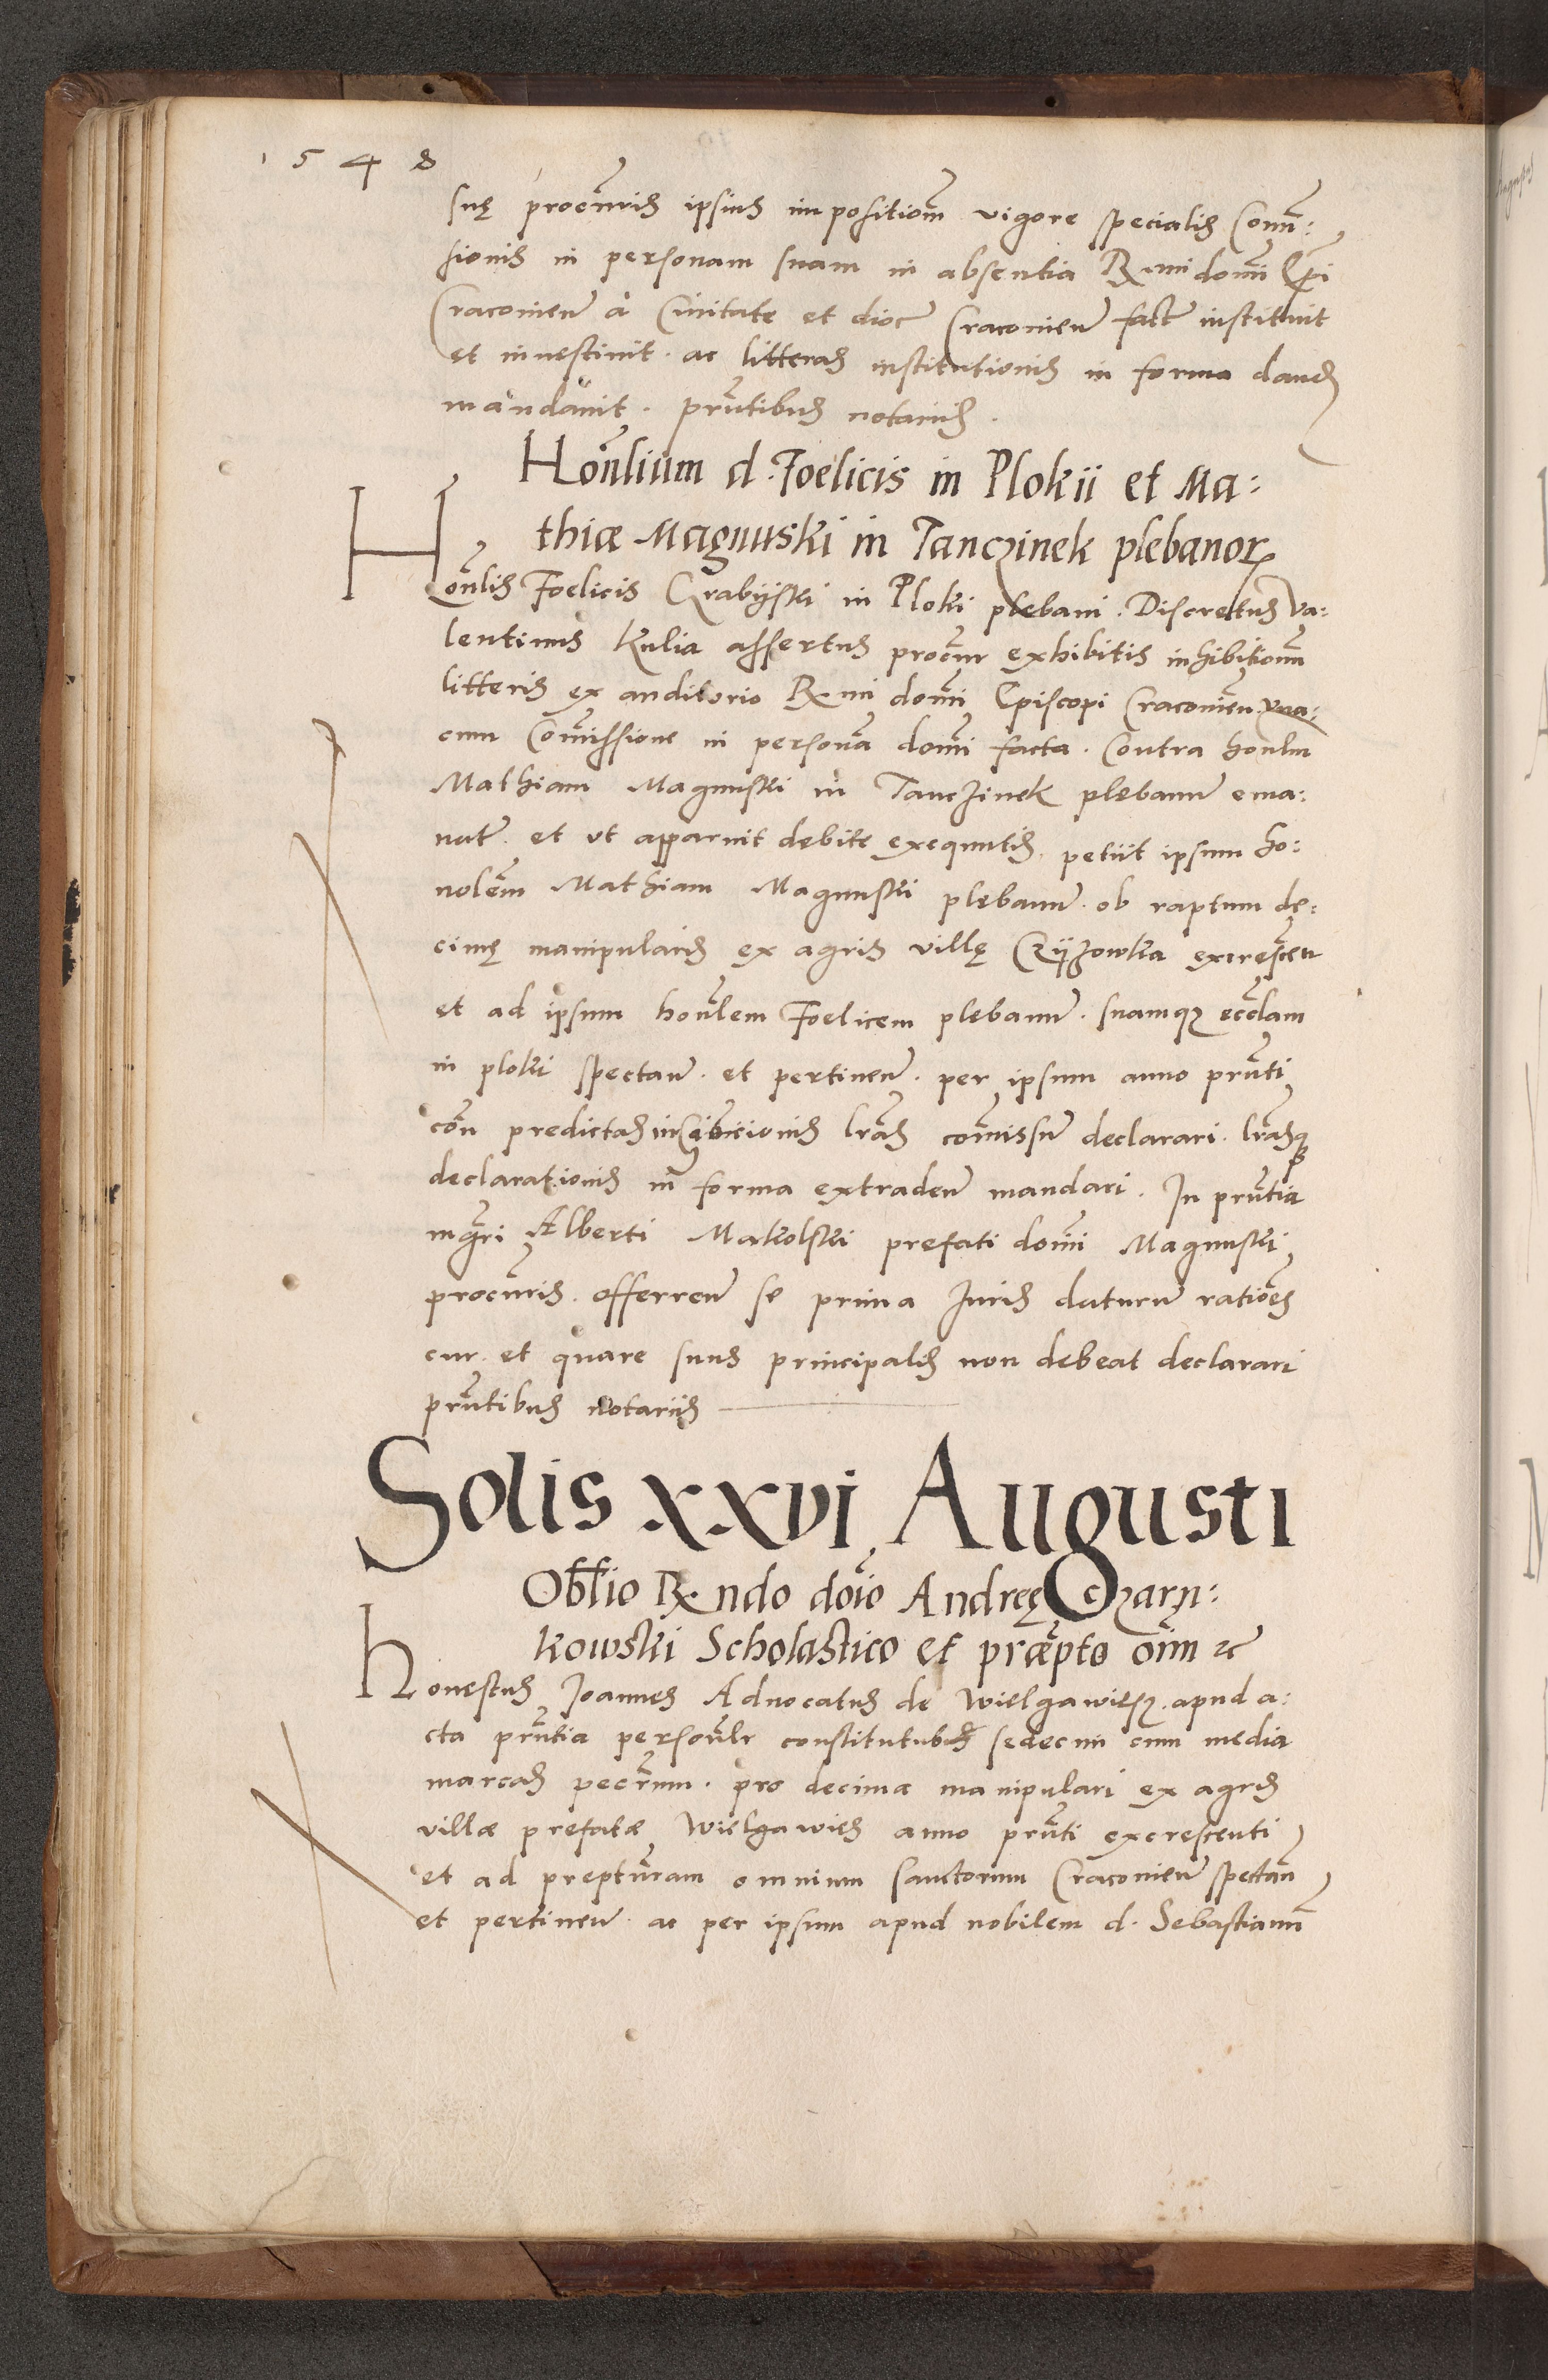 1548
suę procuris ipsius impositiom vigore specialis Comi:
sionis in personam suam in absentia R mi domi Epi
Cracovien a Civitate et dioc Cracovien fact instituit
et investivit. ac litteras institutionis in forma dandas
mandavit. Pntibus notariis.
Honlium d. Foelicis in Plokii et Ma:
thiæ Magnuski in Tanczinek plebanor
Honlis Foelicis Grabijski in Ploki plebani. Discretus Va:
lentinus Kulia assertus procur exhibitis inhibitionum
litteris ex auditorio R mi domi Episcopi Cracovien vna:
cum Comissione in persona domi facta. Contra honlm
Mathiam Magnuski in Tanczinek plebanum ema:
nat. et vt apparuit debite exequutis, petiit ipsum ho:
nolem Mathiam Magnuski plebanum. ob raptum de:
cimę manipularis ex agris villę Czijżowka excrescen
et ad ipsum honlem Foelicem plebanum. suamqz ecclam
in ploki spectan. et pertinen. per ipsum anno pnti
con predictas inhibicionis lras comissum declarari. lrasq
declarationis in forma extraden mandari. In pntia
mgri Alberti Makolski prefati domi Magnuski
procuris. offerren se prima Iuris daturum rationes
cur. et quare suus principalis non debeat declarari
pntibus notariis
Solis XXVI Augusti
Oblio R ndo doio Andreę Czarn:
kowski Scholastico et præpto oim &c
Honestus Joannes Advocatus de Wielgawiesz. apud a:
cta pntia personlr constitutus sedecim cum media
marcas pecrum. pro decima manipulari ex agris
villæ prefatæ Wielgawies anno pnti excrescenti
et ad prepturam omnium sanctorum Cracovien spectan
et pertinen. ac per ipsum apud nobilem d. Sebastianum